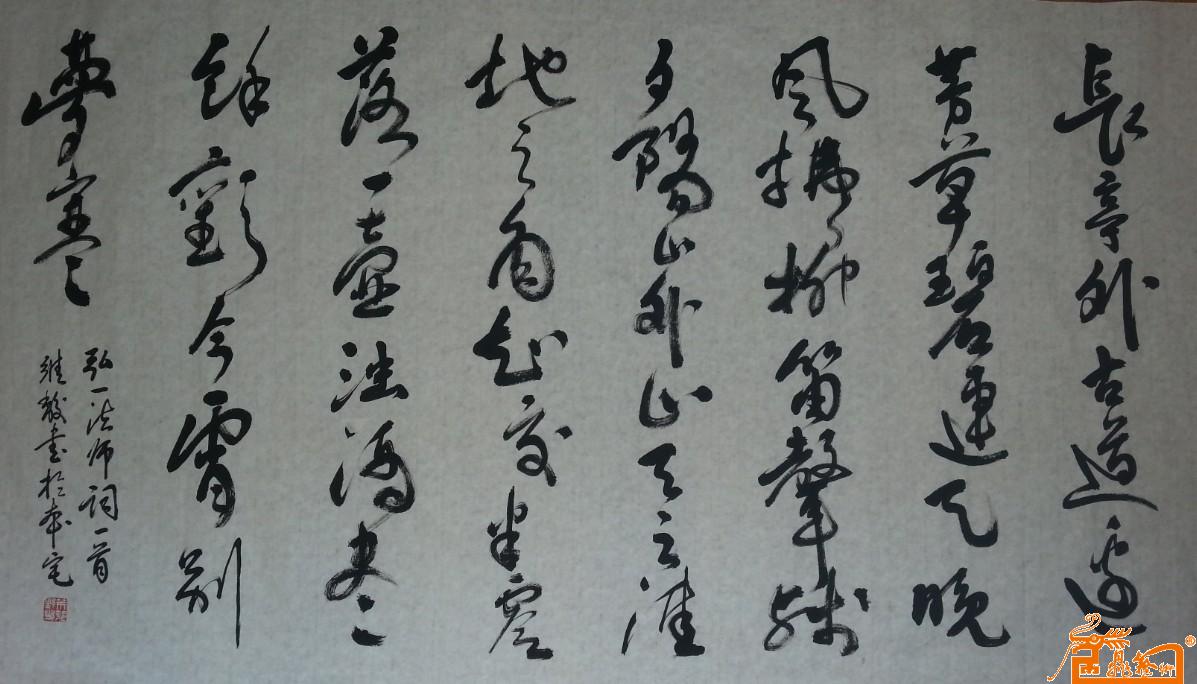 長亭外古道邊
芳草碧連天晚
風拂柳笛聲殘
夕陽山外山天之涯
地之角知交半零
落一壺濁酒盡
餘歡今宵別
夢寒
弘一法师词一首
維發書於本宅